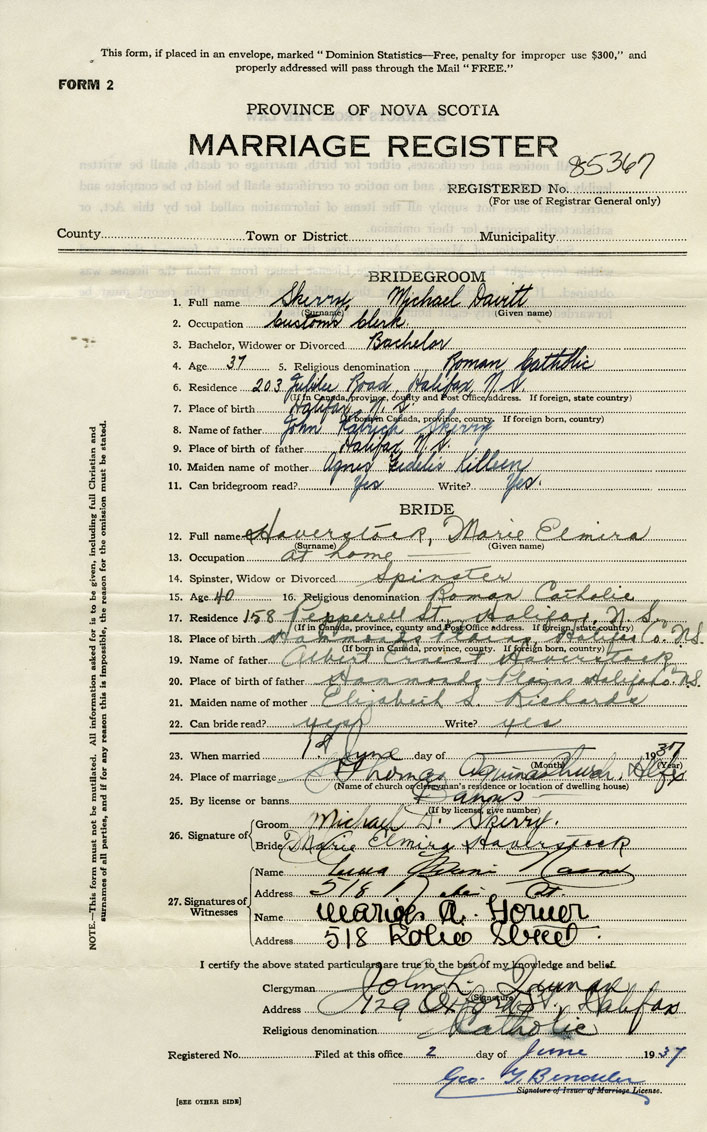 This form, if placed in an envelope, marked "Dominion Statistics—Free, penalty for improper use $300," and
properly addressed will pass through the Mail "FREE."
FORM 2
PROVINCE OF NOVA SCOTIA
MARRIAGE REGISTER
85367
REGISTERED No.
(For use of Registrar General only)
County Town or District Municipality
BRIDEGROOM
1. Full name Skerry, Michael Davitt
(Surname) (Given name)
2. Occupation Customs Clerk.
3. Bachelor, Widower or Divorced Bachelor
4. Age 37 5. Religious denomination Roman Catholic
6. Residence 203 Jubilee Road, Halifax, N.S.
(If in Canada, province, county and Post Office address. If foreign, state country)
7. Place of birth Halifax, N.S.
(If born in Canada, province, county. If foreign born, country)
8. Name of father John Patrick Skerry
9. Place of birth of father Halifax, N.S.
10. Maiden name of mother Agnes Fidelis Killeen
11. Can bridegroom read? Yes Write? Yes.
BRIDE
12. Full name Haverstock, Marie Elmira
(Surname) (Given name)
13. Occupation at home
14. Spinster, Widow or Divorced Spinster
15. Age 40 16. Religious denomination Roman Catholic
17. Residence 158 Pepperell St., Halifax, N.S.
(If in Canada, province, county and Post Office address. If foreign, state country)
18. Place of birth Hammonds Plains, Halifax Co. N.S.
(If born in Canada, province, county. If foreign born, country)
19. Name of father Albert Ernest Haverstock
20. Place of birth of father Hammonds Plains Halifax Co. N.S.
21. Maiden name of mother Elizabeth S. Richards
22. Can bride read? yes Write? yes
23. When married 1st June day of 1937
(Month) (Year)
24. Place of marriage St Thomas Aquinas Church, Hlfx
(Name of church or clergyman's residence or location of dwelling house)
25. By license or banns Banns
(If by license, give number)
26. Signature of Groom Michael D. Skerry.
Bride Marie Elmira Haverstock
27. Signatures of Witnesses
Name
Address 518
Name Marion A.
Address 518 Street.
I certify the above stated particulars are true to the best of my knowledge and belief.
Clergyman John L.
(Signature)
Address 129 Oxford St., Halifax
Religious denomination Catholic
Registered No. Filed at this office 2 day of June 1937
Geo.
Signature of Issuer of Marriage License.
[SEE OTHER SIDE]
NOTE.—This form must not be mutilated. All information asked for is to be given, including full Christian and
surnames of all parties, and if for any reason this is impossible, the reason for the omission must be stated.